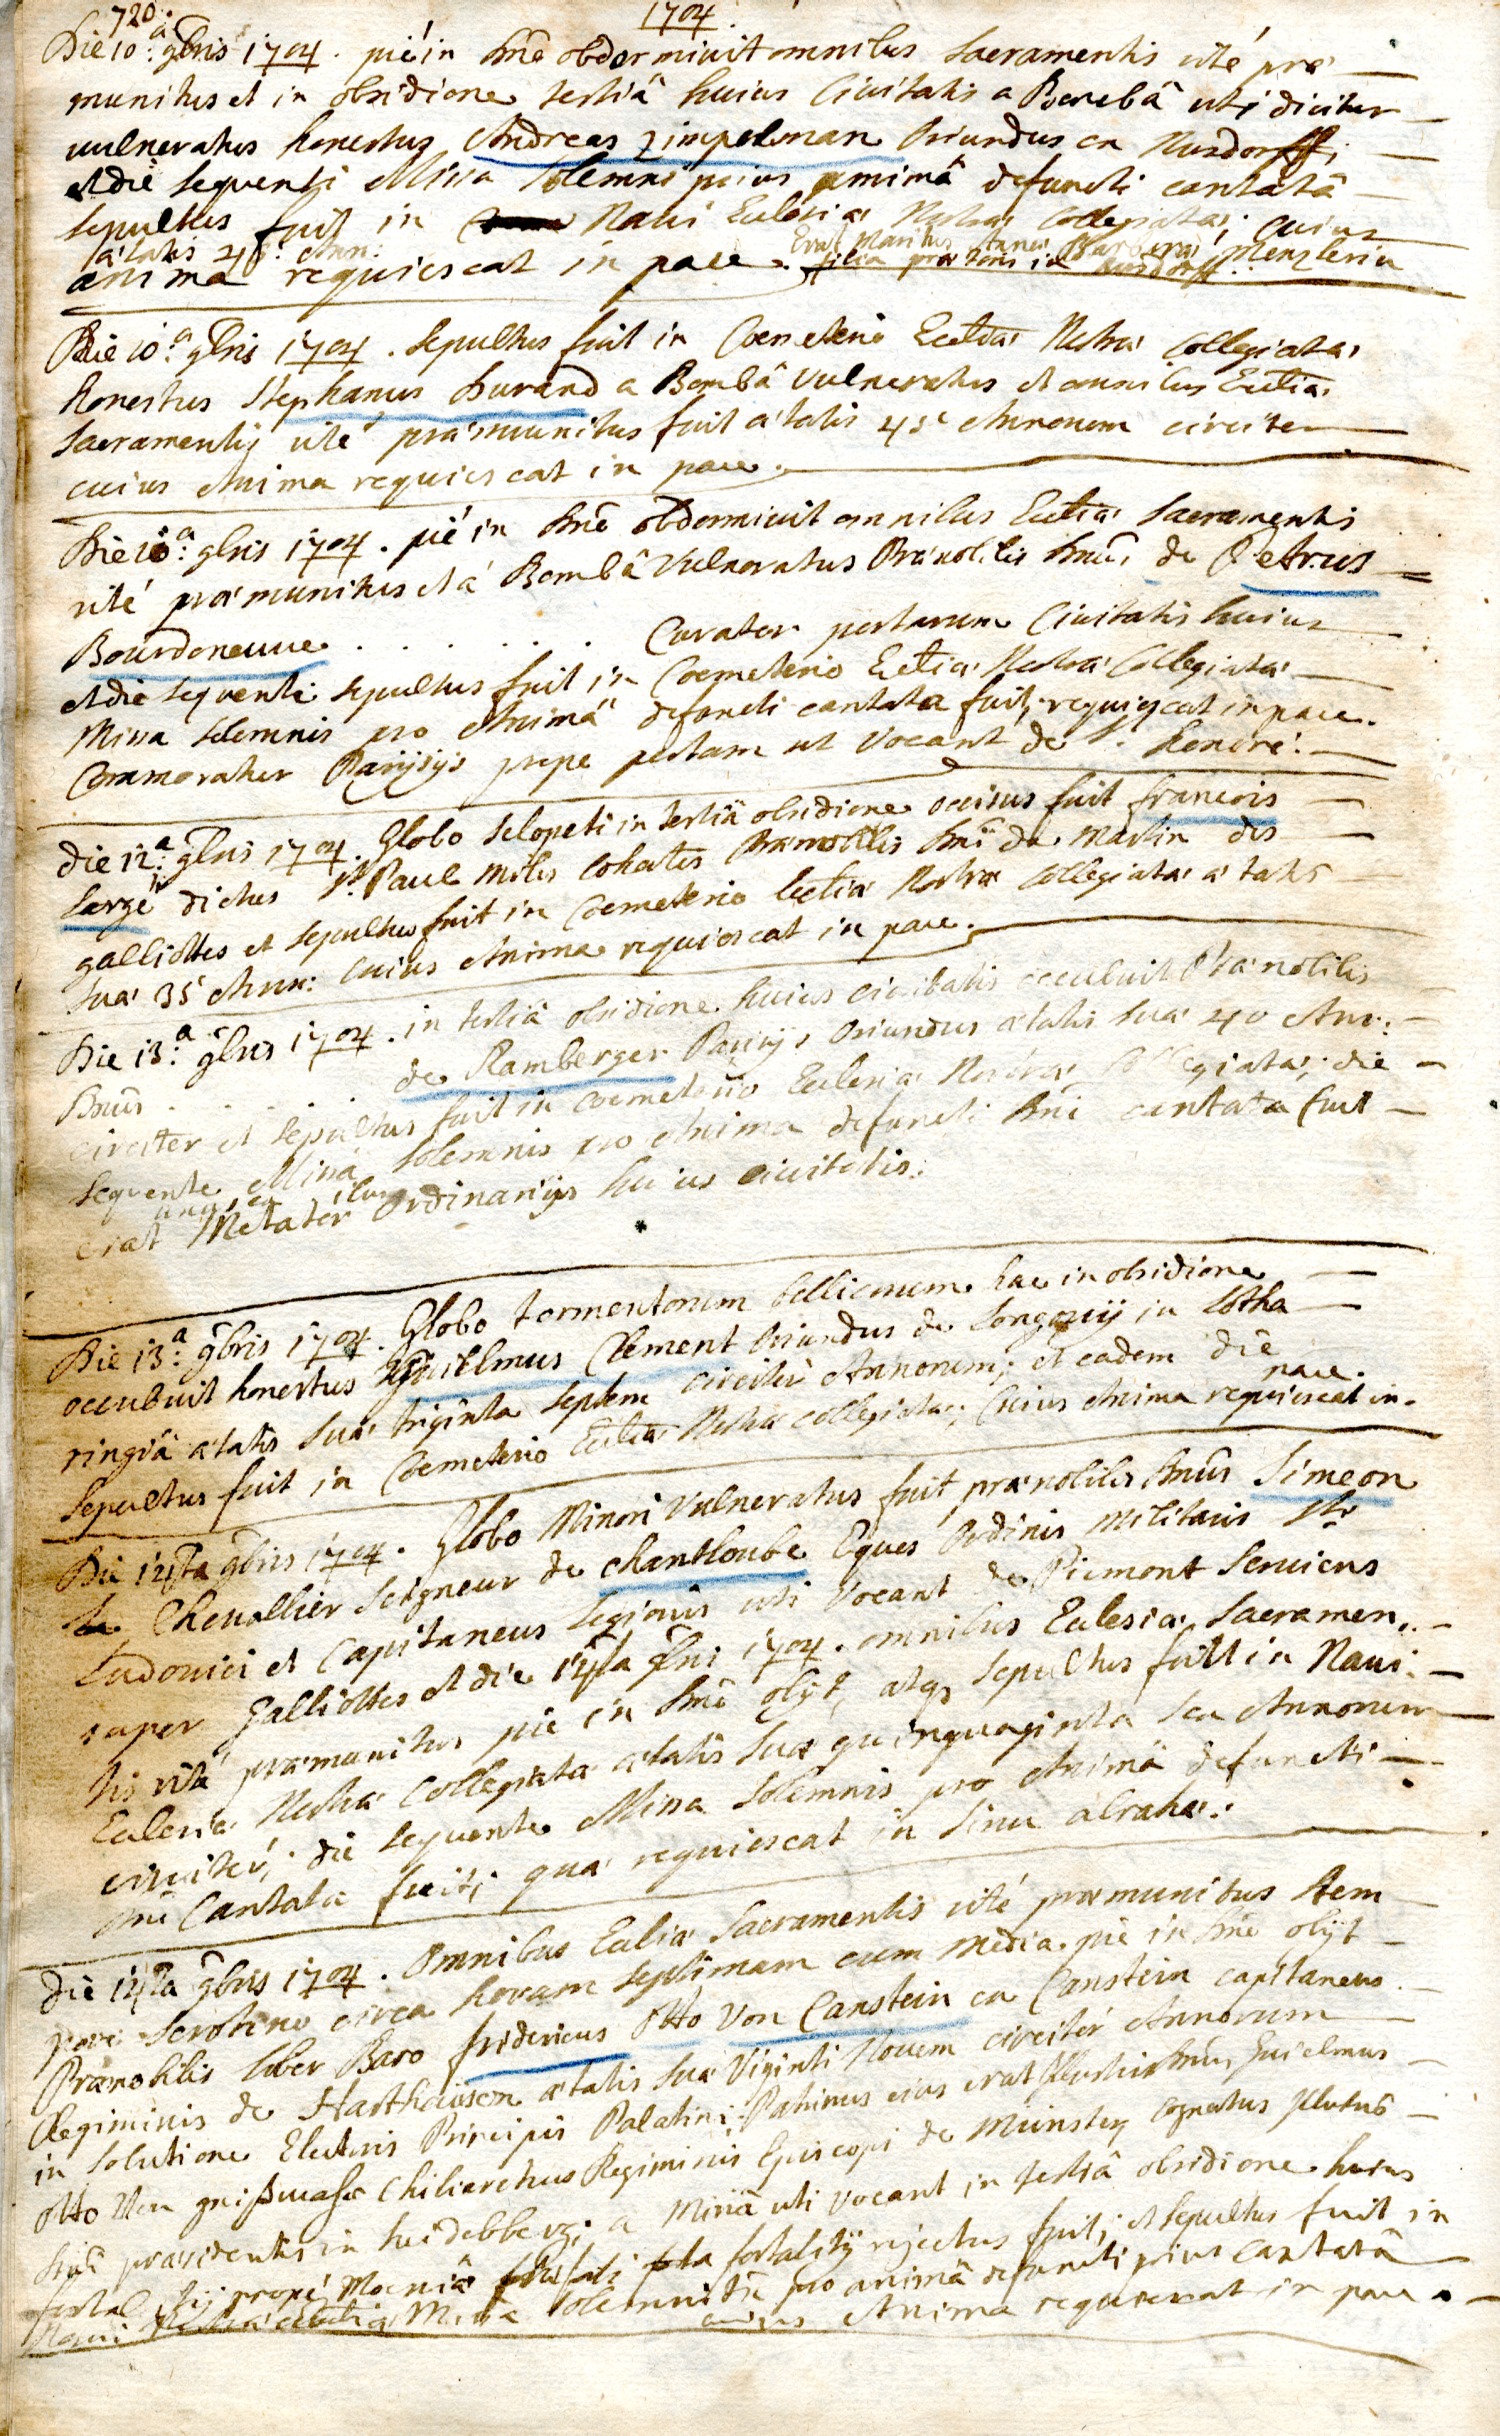 720. 1704.
Die 10.a 9bris 1704. pié in Dno obdormiuit omnibus Sacramentis rité præ
munitus et in obsidione tertiâ huius Ciuitatis a Boembâ uti dicitur
uulneratus honestus Andreas Zimpelman Oriundus ex Nusdorff;
et die sequenti Missa Solemni prius pro animâ defuncti cantatâ
sepultus fuit in Naui Eclesiæ Nostræ Collegiatæ; cuius
ætatis 48. Ann:
anima requiescat in pace. Erat Maritus Annæ Barberæ Menzlerin
filia prætoris in Nusdorff.
Die 10.a 9bris 1704. Sepultus fuit in Coemeterio Ecclæ Nostræ Collegiatæ
honestus Stephanus Durand a Bombâ Vulneratus et omnibus Ecclæ
Sacramentis rité præmunitus fuit ætatis 45 Annorum circiter
cuius Anima requiescat in pace.
Die 10.a 9bris 1704. pié in Dno obdormiuit omnibus Ecclæ Sacramentis
rité præmunitus et á Bombâ Vulneratus Prænobilis Dnus de Petrus
Bourdoneuue . . . . . . Curator portarum Ciuitatis huius
et die sequenti sepultus fuit in Coemeterio Ecclæ Nostræ Collegiatæ
Missa solemnis pro Animâ defuncti cantata fuit, requiescat in pace.
Commoratur Parisijs prope portam ut Vocant de S. honoré.
die 12.a 9bris 1704. Globo Sclopeti in tertiâ obsidione occisus fuit francois
Large dictus St Paul Miles Cohortis Prænobilis Dni de Martin des
galliottes et sepultus fuit in Coemeterio Ecclæ Nostræ Collegiatæ ætatis
suæ 35 Ann: cuius Anima requiescat in pace.
Die 13.a 9bris 1704. in tertiâ obsidione huius ciuitatis occubuit Prænobilis
Dnus . . . . de Ramberger Parisijs Oriundus ætatis suæ 40 Ann:
circiter et sepultus fuit in Coemeterio Eclesiæ Nostræ Collegiatæ; die
sequente Missa solemnis pro Anima defuncti Dni cantata fuit
erat unus ex Metatoribus Ordinarijs huius ciuitatis.
Die 13.a 9bris 1704. Globo tormentorum bellicorum hac in obsidione
occubuit honestus Guilelmus Clement Oriundus de Longouij in Lotha
ringiâ ætatis suæ triginta septem circiter Annorum; et eadem die
sepultus fuit in Coemeterio Ecclæ Nostræ Collegiatæ; Cuius Anima requiescat in pace.
Die 14ta 9bris 1704. Globo Minori Vulneratus fuit prænobilis Dnus Simeon
Cheuallier Seigneur de Chantloube Eques Ordinis Militaris Sti
Ludouici et Capitaneus Legionis uti Vocant de Piemont Seruiens
super Galliottes et die 14ta 9bri 1704. omnibus Eclesiæ Sacramen
tis rité præmunitus pie in Dno obijt, atque sepultus fuit in Naui
Eclesiæ Nostræ Collegiatæ ætatis suæ quinquaginta sex Annorum
circiter; die sequente Missa Solemnis pro Animâ defuncti
Dni Cantata fuit; quæ requiescat in Sinu abrahæ.
die 14ta 9bris 1704. Omnibus Eclæ Sacramentis rité præmunitus tem
pore serotino circa horam septimam cum media pie in Dno obijt
Prænobilis Liber Baro fridericus Otto Von Canstein ex Canstein capitaneus
Regiminis de Harthausen ætatis suæ Viginti Nouem circiter Annorum
in solutione Electoris Principis Palatini; Patrinus eius erat Guielmus
Otto Von Chiliarchus Regiminis Episcopi de Munster, cognatus
Dni præsidentis in heidelberg; a Minâ uti vocant in tertiâ obsidione huius
fortalitij propé Moeniâ fortalitij rejectus fuit; et sepultus fuit in
Naui Missâ Solemni pro animâ defuncti prius cantatâ
cuius Anima requiescat in pace.